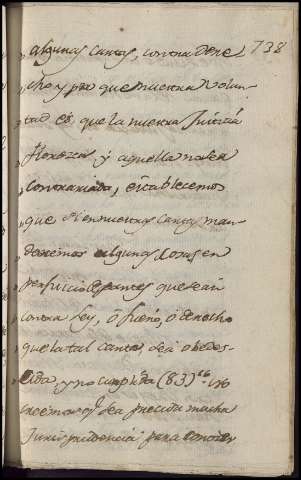 738
„ algunas cartas, contra dere-
„ cho, y por que nuestra volun-
„ tad es, que la nuestra Justicia
„ florezca y aquella no sea
„ contrariada, establecemos
„ que si en nuestras cartas man-
„ daremos algunas cosas en
„ perjuicio de partes que sean
„ contra ley, ó fuero, ó derecho
„ que la tal carta sea obedes-
„ cida, y no cumplida (83) co yo
creemos q.e sea precisa mucha
Jurisprudencia para conocer